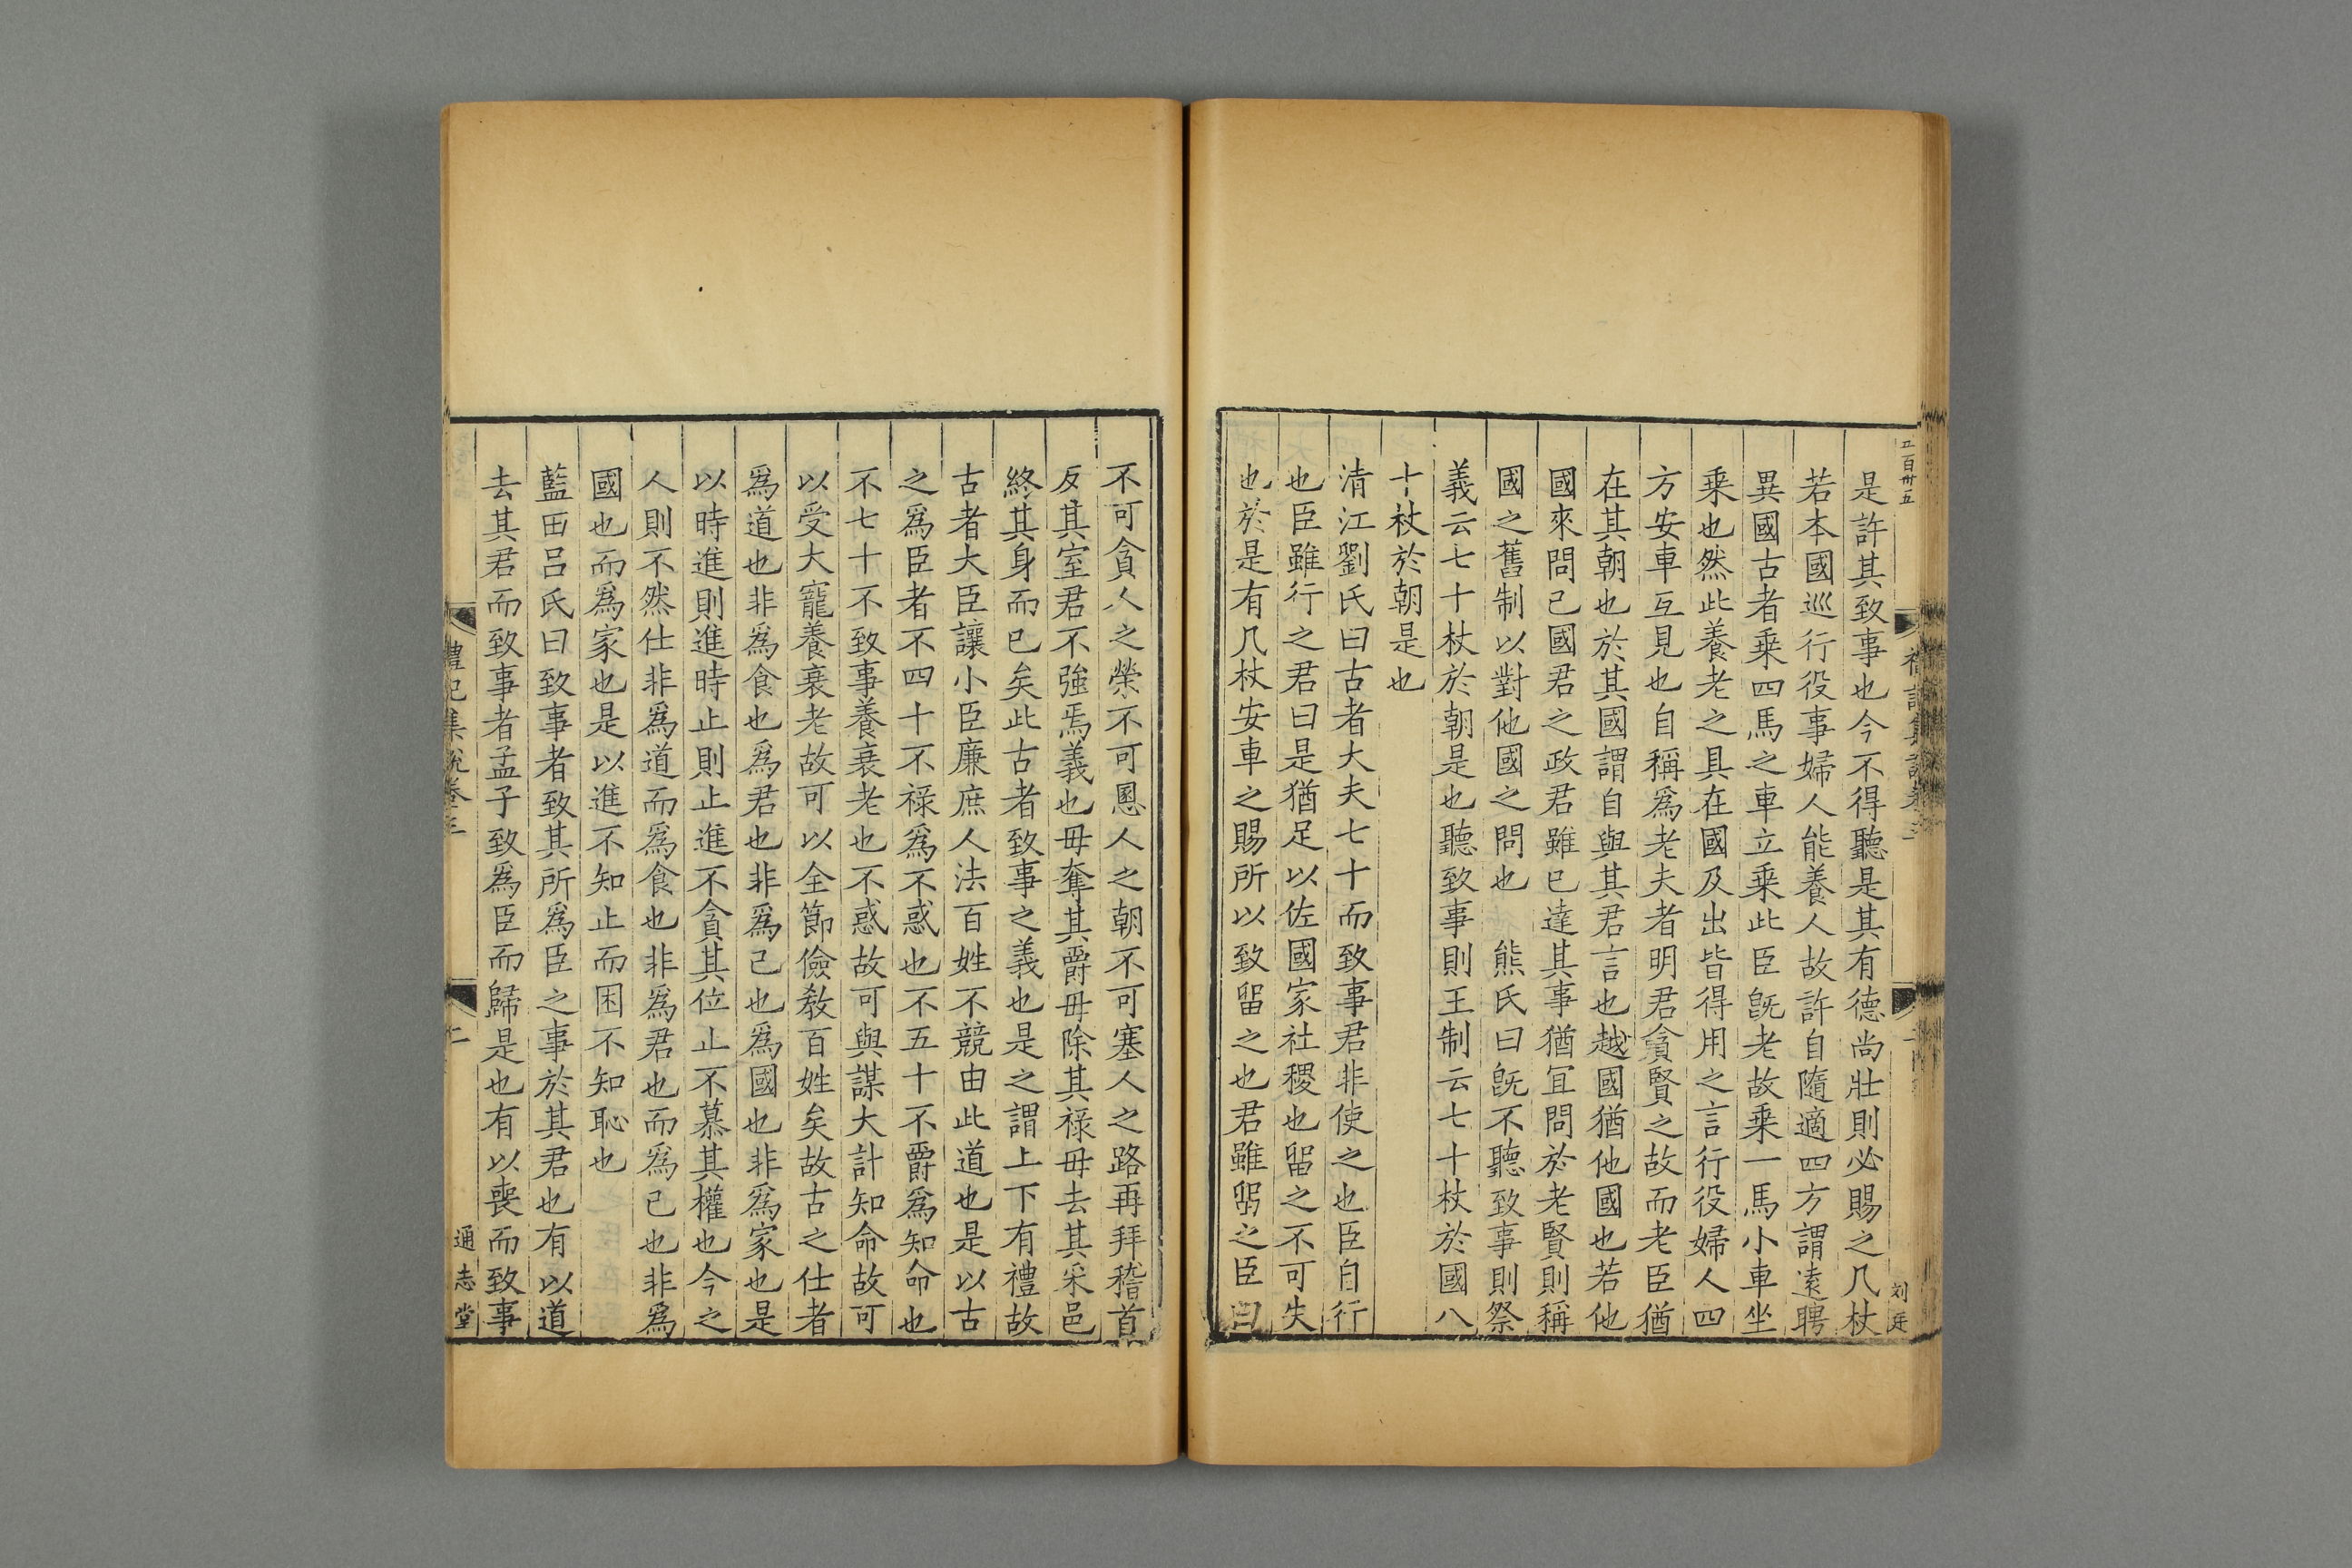 五百卅五
是許其致事也今不得聽是其有德尚壯則必賜之几杖
若本國巡行役事婦人能養人故許自隨適四方謂遠聘
異國古者乗四馬之車立乗此臣旣老故乗一馬小車坐
乗也然此養老之具在國及出皆得用之言行役婦人四
方安車互見也自稱爲老夫者明君貪賢之故而老臣猶
在其朝也於其國謂自與其君言也越國猶他國也若他
國來問己國君之政君雖已達其事猶冝問於老賢則稱
國之舊制以對他國之問也　熊氏曰旣不聽致事則祭
義云七十杖於朝是也聽致事則王制云七十杖於國八
十杖於朝是也
清江劉氏曰古者大夫七十而致事君非使之也臣自行
也臣雖行之君曰是猶足以佐國家社稷也留之不可失
也於是有几杖安車之賜所以致留之也君雖留之臣曰
不可貪人之榮不可慁人之朝不可塞人之路再拜稽首
反其室君不強焉義也毋奪其爵毋除其禄毋去其采邑
終其身而已矣此古者致事之義也是之謂上下有禮故
古者大臣讓小臣廉庶人法百姓不競由此道也是以古
之爲臣者不四十不禄爲不惑也不五十不爵爲知命也
不七十不致事養衰老也不惑故可與謀大計知命故可
以受大寵養衰老故可以全節儉敎百姓矣故古之仕者
爲道也非爲食也爲君也非爲己也爲國也非爲家也是
以時進則進時止則止進不貪其位止不慕其權也今之
人則不然仕非爲道而爲食也非爲君也而爲己也非爲
國也而爲家也是以進不知止而困不知恥也
藍田吕氏曰致事者致其所爲臣之事於其君也有以道
去其君而致事者孟子致爲臣而歸是也有以喪而致事
禮記集說卷三
二
通志堂